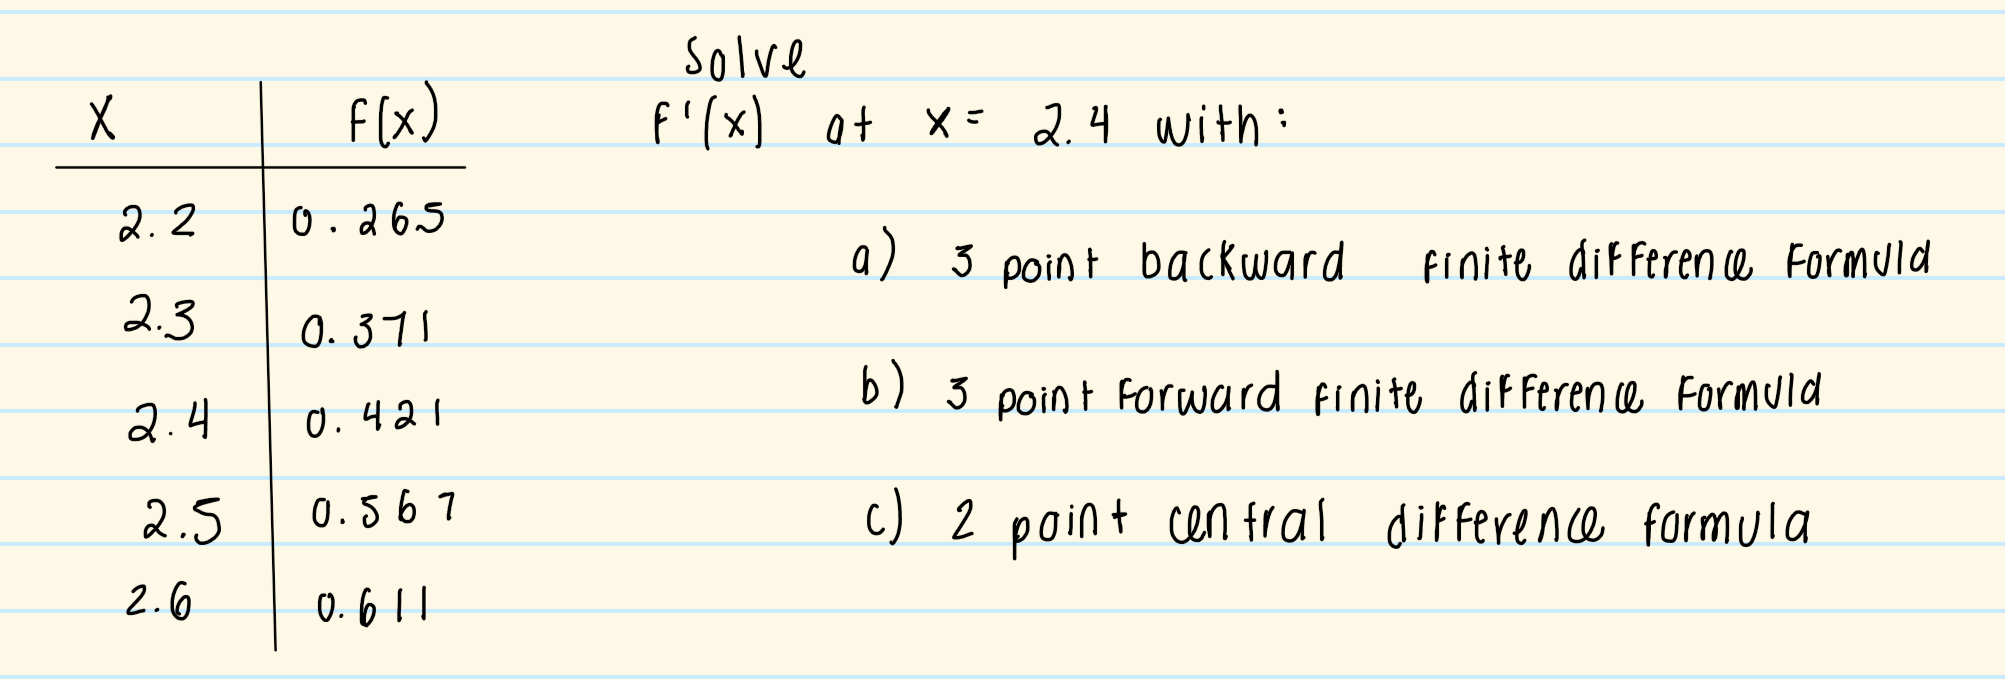 Solve
x f(x) f'(x) at x= 2.4 with:
2.2 0.265
a) 3 point backward finite difference formula
2.3 0.371
b) 3 point forward finite difference formula
2.4 0.421
2.5 0.567
c) 2 point central difference formula
2.6 0.611